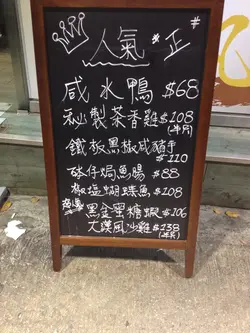 人氣 正
咸水鴨 $68
秘製茶香雞 $108
(半只)
鐵板黑椒咸豬手
$110
砵仔焗魚腸 $88
椒塩蝴蝶魚 $108
黑金蜜糖蝦 $106
大漠風沙雞 $138